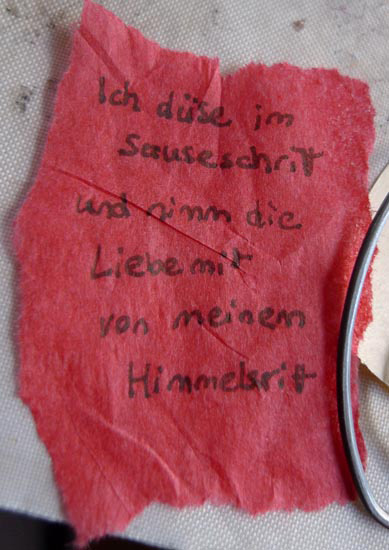 Ich düse im
Sauseschrit
und nimm die
Liebe mit
von meinem
Himmelsrit